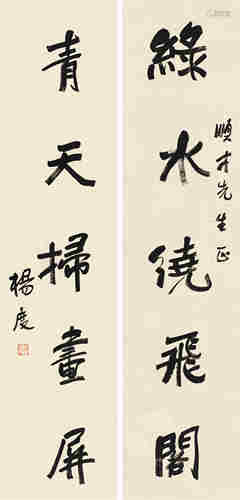 綠水繞飛閣
順才先生正
青天掃畫屏
楊度